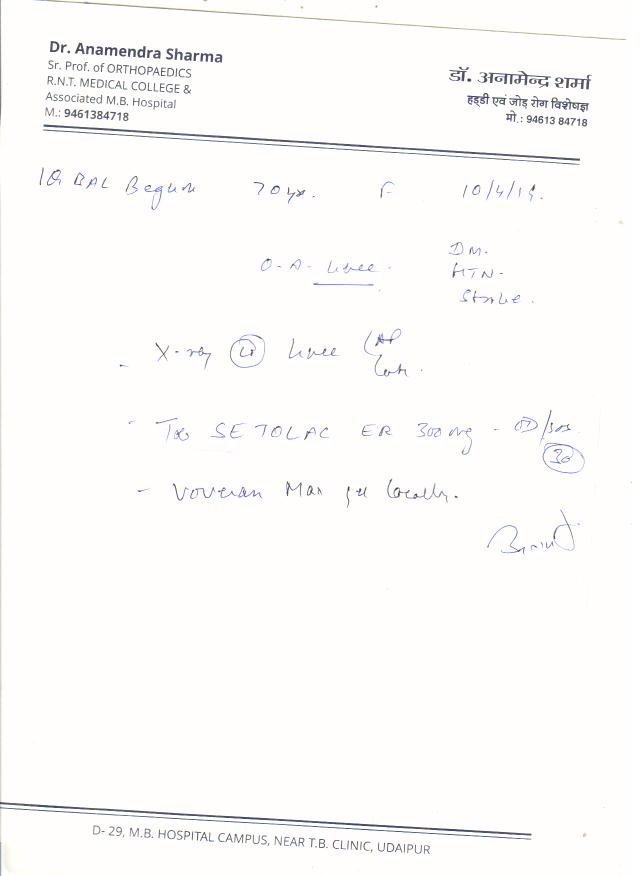 Dr. Anamendra Sharma
Sr. Prof. of ORTHOPAEDICS
R.N.T. MEDICAL COLLEGE &
Associated M.B. Hospital
M.: 9461384718
डॉ. अनामेन्द्र शर्मा
हड्डी एवं जोड़ रोग विशेषज्ञ
मो.: 94613 84718
IQBAL Begum 70 yr. F 10/4/19.
O-A- knee.
DM.
HTN-
Stroke.
- X-ray knee AP
Lat.
- Tab SETOLAC ER 300 mg - OD/SOS
30
- Voveran Max gel locally.
D- 29, M.B. HOSPITAL CAMPUS, NEAR T.B. CLINIC, UDAIPUR